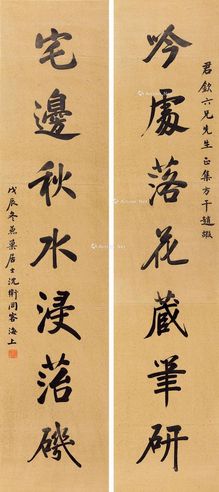 君欽六兄先生正集方干趙嘏
吟處落花藏筆研
宅邊秋水浸苔磯
戊辰冬燕巢居士沈衛同客海上